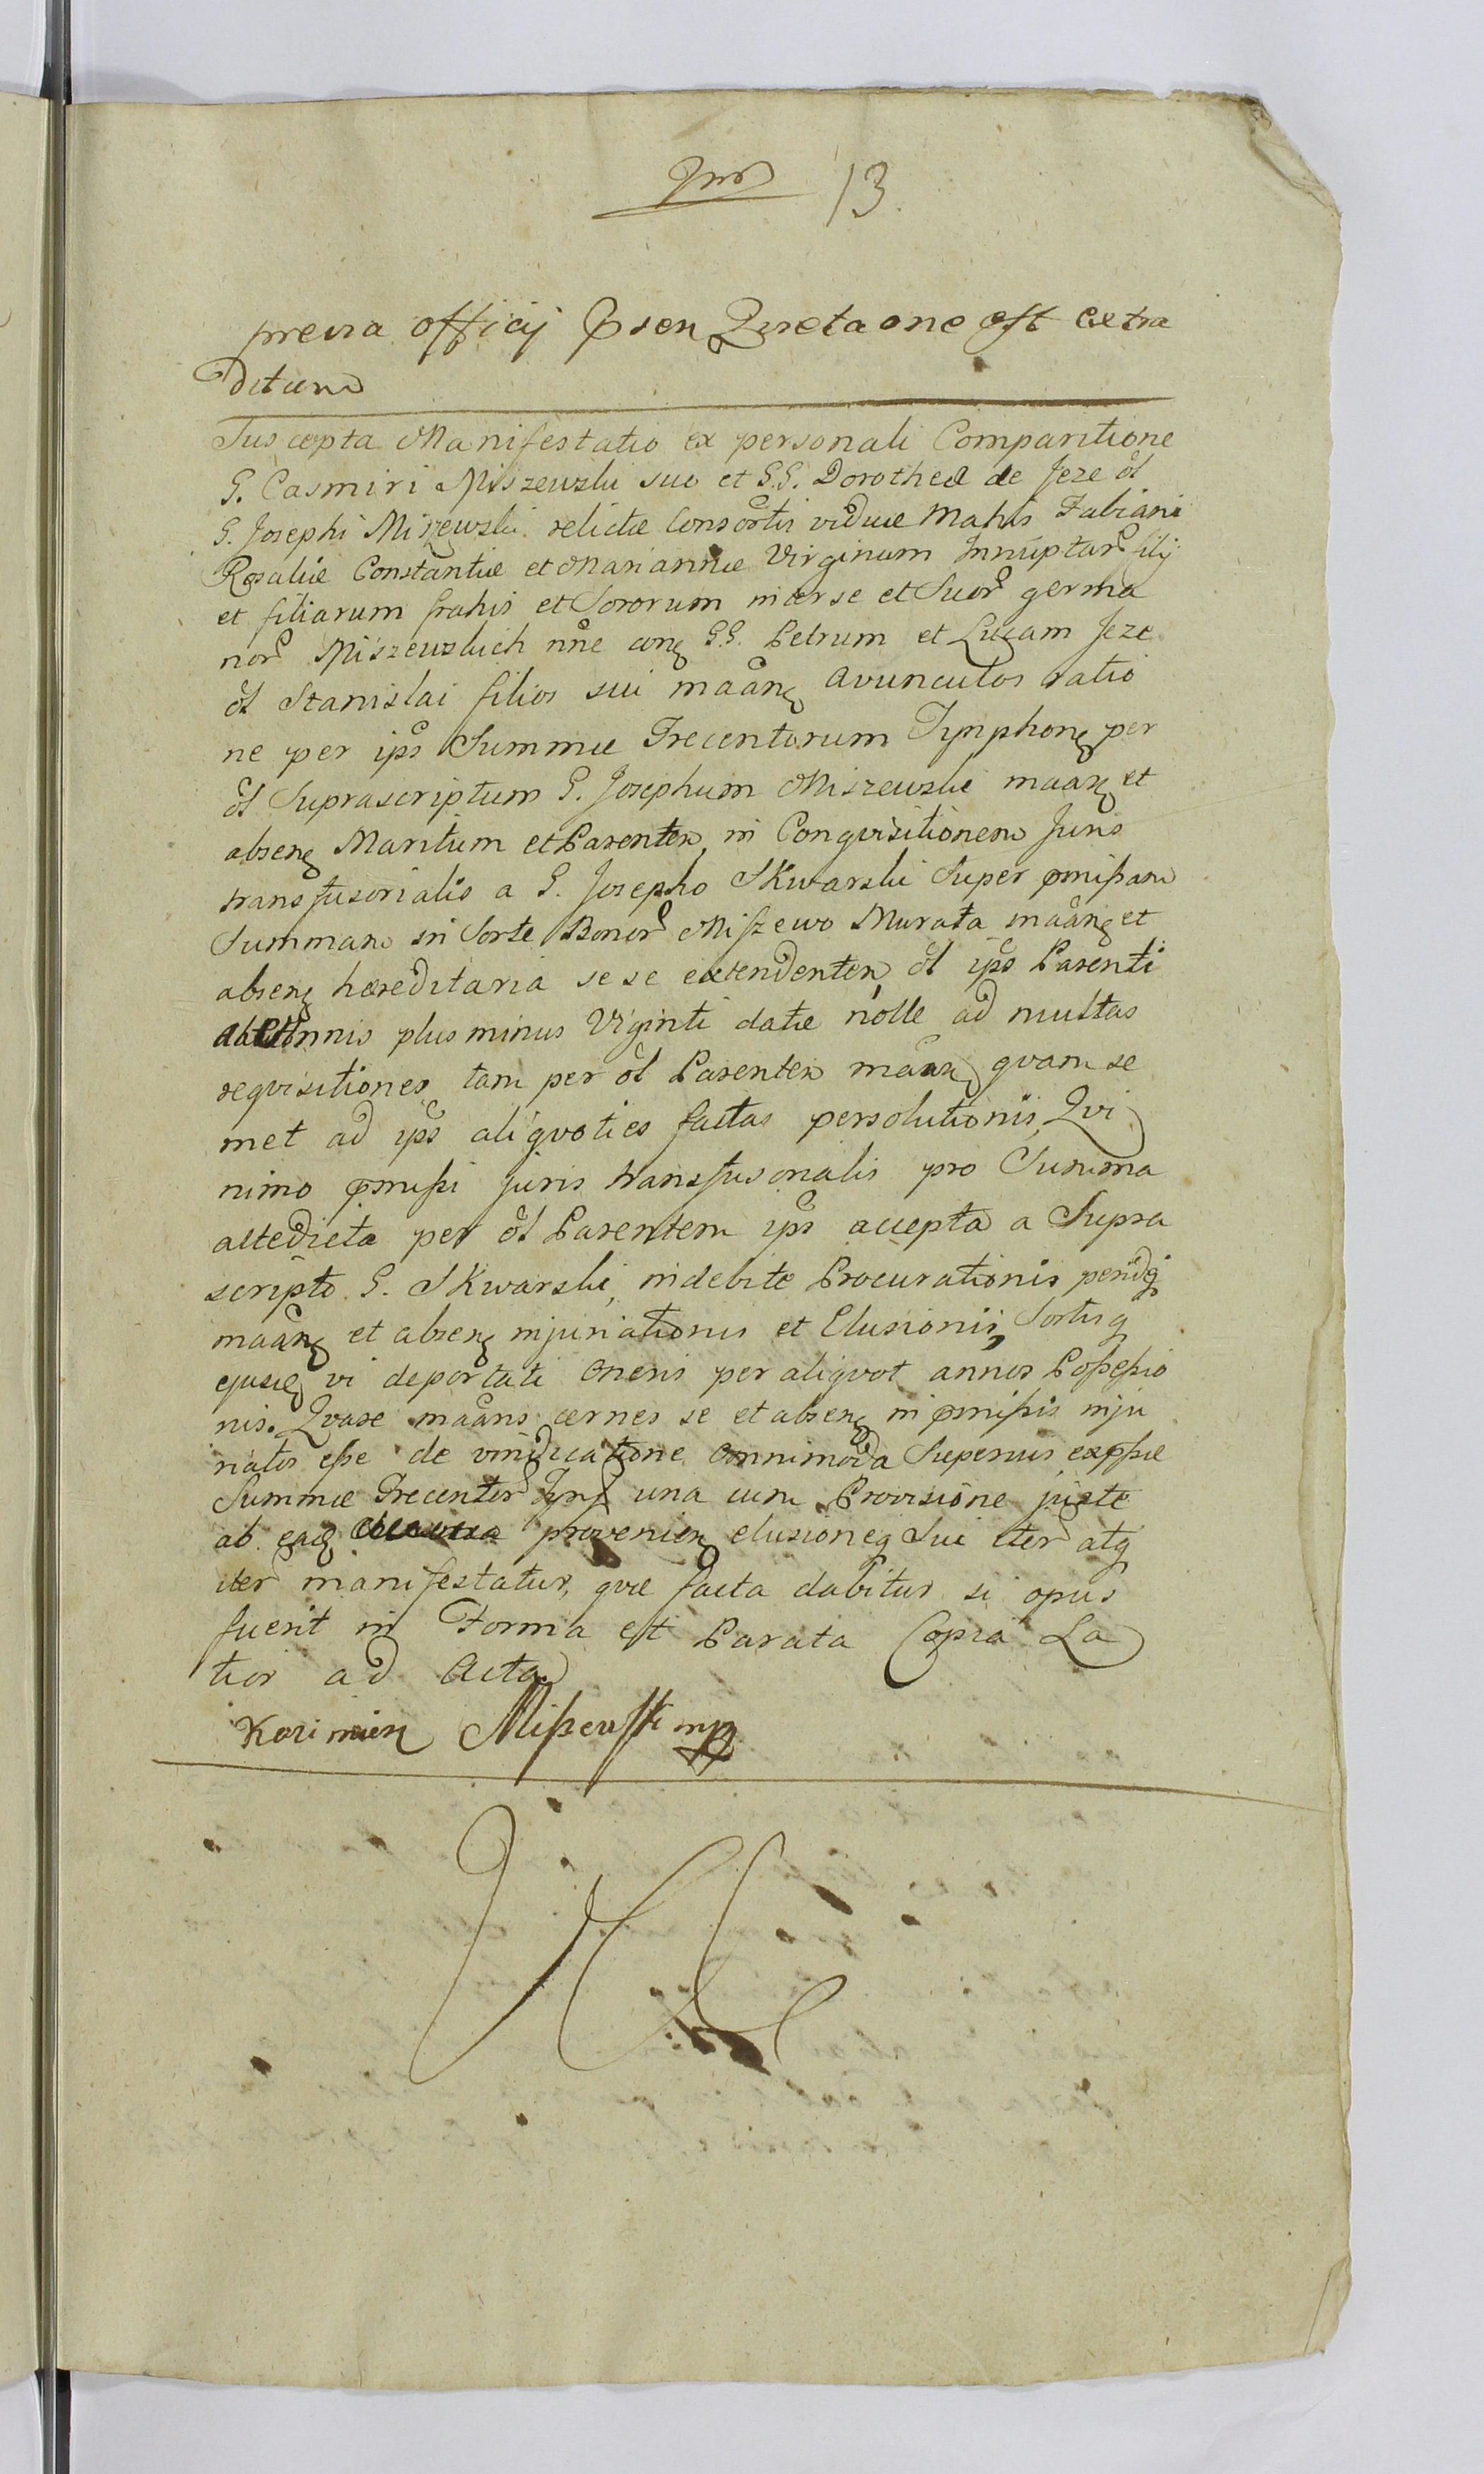 13.
previa officij Psen Quietaone est extra
ditum
Suscepta Manifestatio ex personali Comparitione
G. Casmiri Miszewski suo et G.G. Dorotheæ de Jeze ol
G. Josephi Miszewski relictæ Consortis viduæ Matris Fabiani
Rosaliæ Constantiæ et Mariannæ Virginum Innuptar filij
et filiarum fratris et Sororum inter se et Suor germa
nor Miszewskich nne conq G.G. Petrum et Lucam Jeze
ol Stanislai filios sui maanq Avunculos ratio
ne per ips Summæ Trecentorum Tynphonq per
ol Suprascriptum G. Josephum Miszewski maanq et
absenq Maritum et Parentem, in Conqvisitionem Juris
transfusorialis a G. Josepho Skwarski Super pmissam
Summam in Sorte Bonor Miszewo Murata maanq et
absenq hæreditaria sese extendentem, ol ips Parenti
ab Annis plus minus Viginti datæ nolle ad multas
reqvisitiones tam per ol Parentem maanq qvam se
met ad ips aliqvoties factas persolutionis, Qvi
nimo pmissi juris transfusorialis pro Summa
altedicta per ol Parentem ips accepta a Supra
scripto G. Skwarski, indebite Procurationis perindq
maanq et absenq injuriationis et Elusionis, Sortisq
ejusdq vi deportati Oneris per aliqvot annos Possessio
nis. Qvare maans cernes se et absenq in pmissis inju
riatos esse de vindicatione omnimoda Superius expssæ
Summæ Trecentor Tynf una cum Provisione juste
ab eadq provenienq elusioneq Sui iter atq
iter manifestatur, qvæ facta dabitur si opus
fuerit in Forma est Parata Copia La
tior ad Acta
Kazimierz Miszewski mp